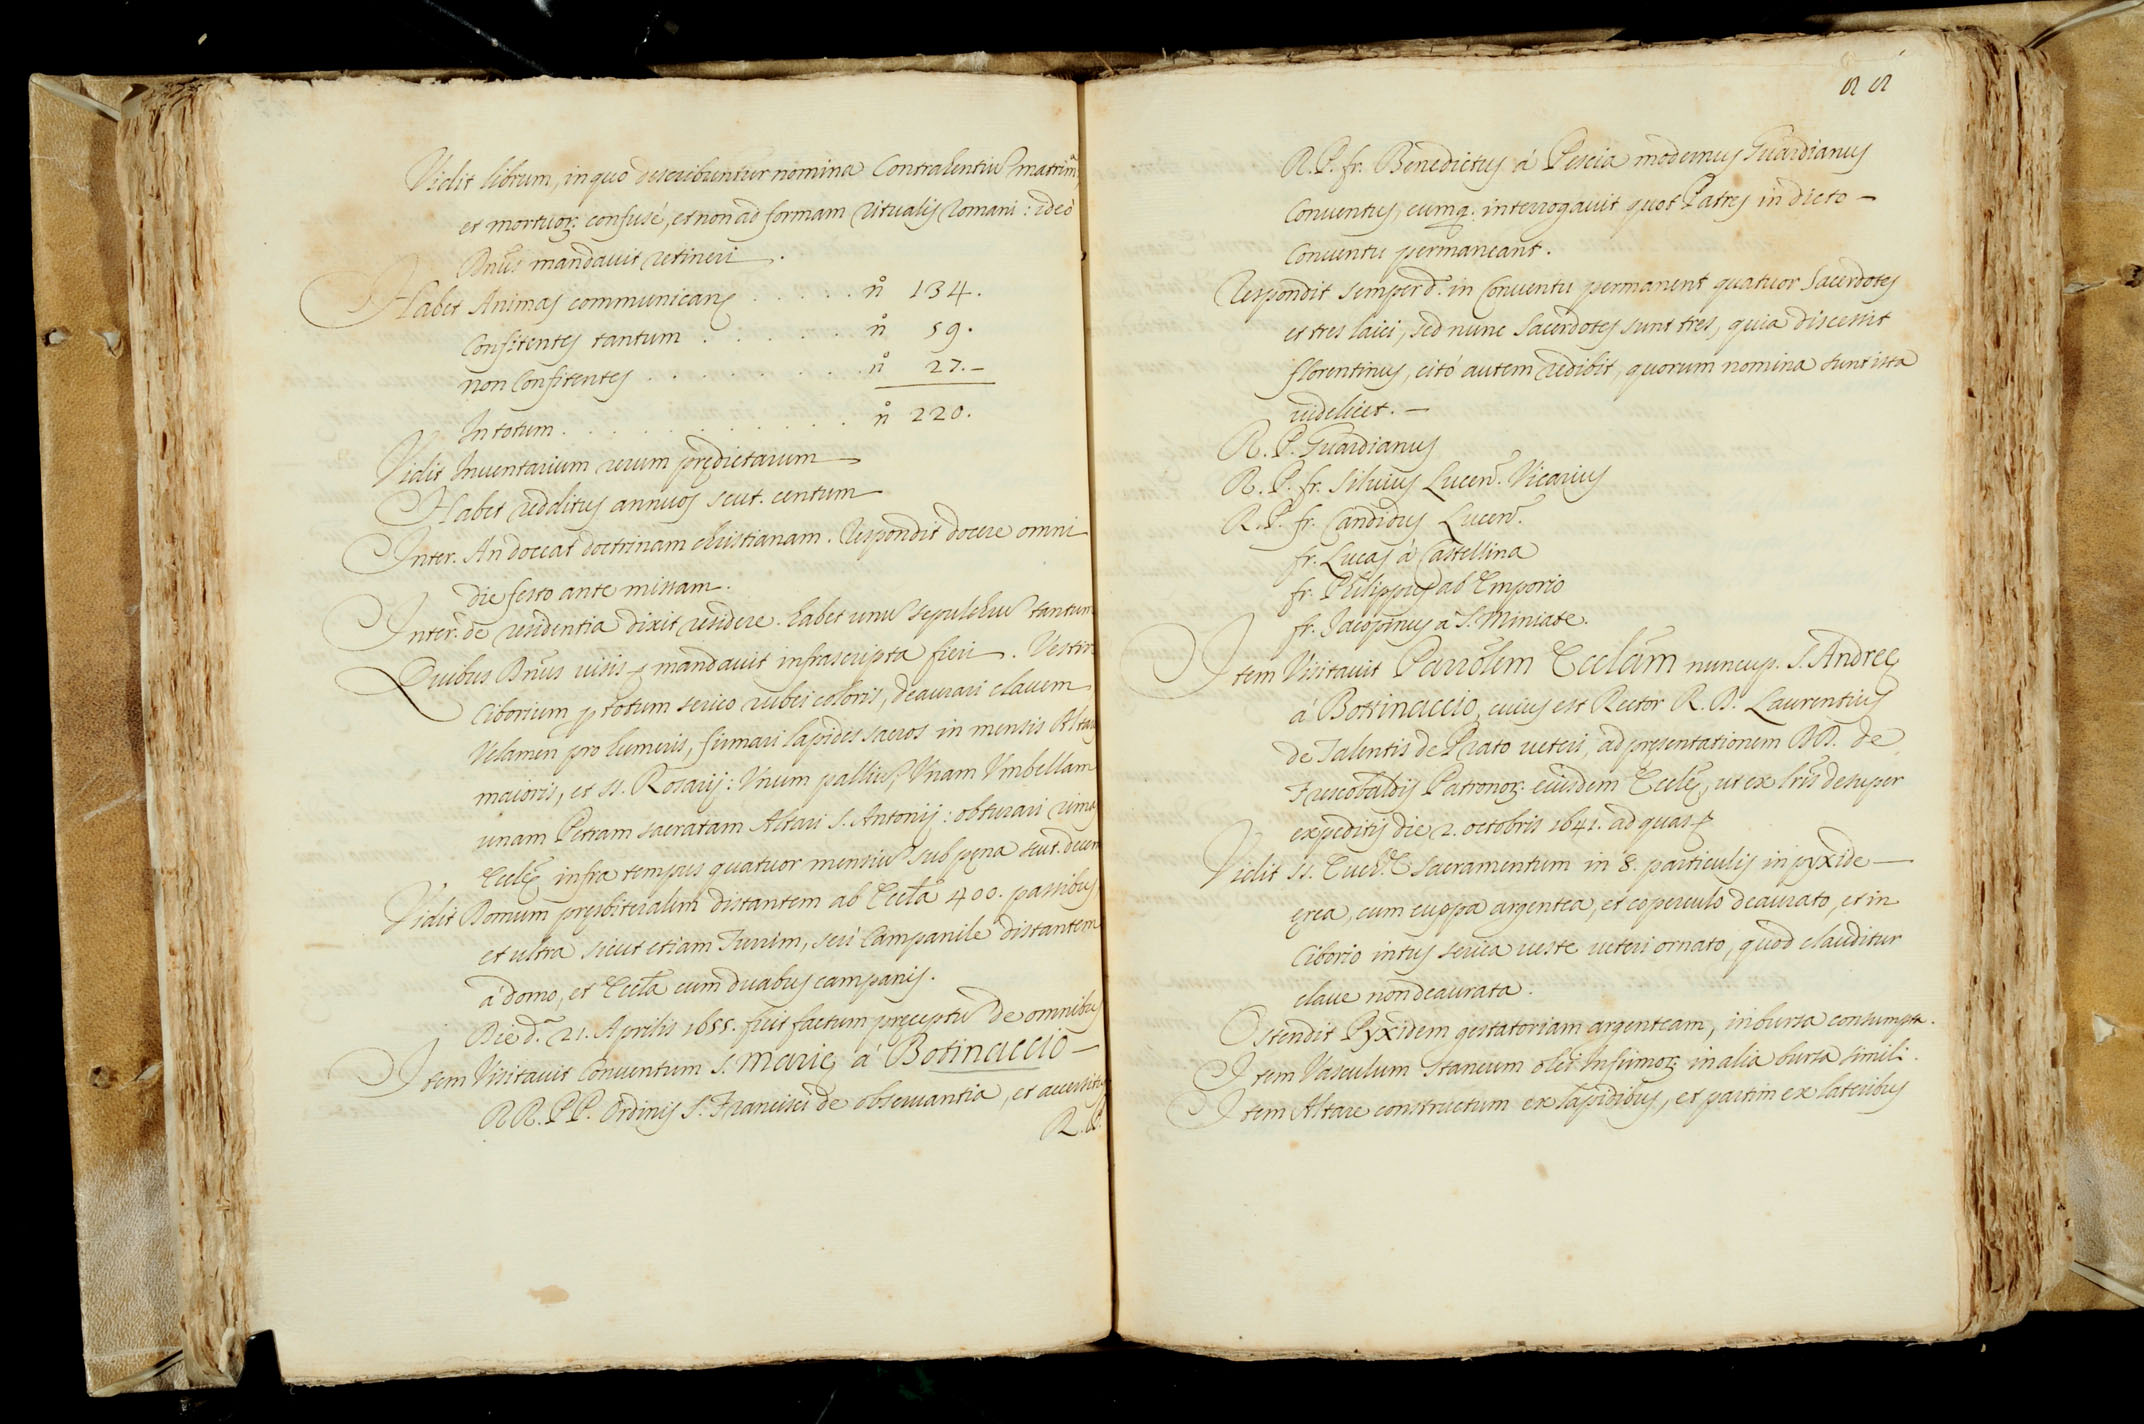 Vidit librum, in quo describuntur nomina Contrahentiũ matrim.ª
et mortuoꝝ confusé, et non ad formam Ritualis Romani: ideò
Dn̄us mandauit retineri.
Habet Animas communicanẽ . . . . . n.º 134.
Confitentes tantum . . . . . . n.º 59.
non Confitentes . . . . . . . . . n.º 27.–
In totum . . . . . . . . . . . . n.º 220.
Vidit Inuentarium rerum prędictarum
Habet redditus annuos scut. centum
Inter. An doceat doctrinam christianam. Respondit docere omni
die festo ante missam.
Inter. de residentia dixit residere. habet unũ sepulchrũ tantum
Quibus Dn̄us uisis & mandauit infrascripta fieri. Vestiri
Ciborium p totum serico rubei coloris, deaurari clauem
Velamen pro humeris, firmari lapides sacros in mensis Altaris
maioris, et SS. Rosarij: Vnum palliũ, Vnam Vmbellam
unam Petram sacratam Altari S. Antonij: obturari rimas
Eccłę infra tempus quatuor mensiũ sub pęna scut. decem
Vidit Domum presbiteralem distantem ab Eccła 400. passibus
et ultra sicut etiam Turrim, seù Campanile distantem
à domo, et Eccła cum duabus campanis.
Die d.ª 21. Aprilis 1655. fuit factum pręceptũ de omnibus
Item Visitauit Conuentum S. Marię à Botinaccio –
RR. PP. Ordinis S. Francisci de obseruantia, et accersitus
R. P.
55
R. P. fr. Benedictus à Pescia modernus Guardianus
Conuentus, eumq. interrogauit quot Patres in dicto –
Conuentu permaneant.
Respondit semper d. in Conuentu permanent quatuor Sacerdotes
et tres laici, sed nunc Sacerdotes sunt tres, quia discessit
florentinus, citò autem redibit, quorum nomina sunt ista
uidelicet. –
R. P. Guardianus
R. P. fr. Siluius Lucen̄. Vicarius
R. P. fr. Candidus Lucen̄.
fr. Lucas à Castellina
fr. Philippus ab Emporio
fr. Jacopinus à S. Miniate.
Item Visitauit Parrōlem Ecclām nuncup. S. Andreę
à Bottinaccio, cuius est Rector R. D. Laurentius
de Talentis de Prato ueteri, ad pręsentationem DD. de
Frescobaldis Patronoꝝ eiusdem Eccłę, ut ex lr̄is desuper
expeditis die 2. octobris 1641. ad quas &
Vidit SS. Euch.ę Sacramentum in 8. particulis in pyxide –
ęrea, cum cuppa argentea, et coperculo deaurato, et in
Ciborio intus serica ueste ueteri ornato, quod clauditur
claue non deaurata.
Ostendit Pyxidem gestatoriam argenteam, in bursa consumpta.
Item Vasculum staneum olei Infirmoꝝ in alia bursa simili.
Item Altare constructum ex lapidibus, et partim ex lateribus